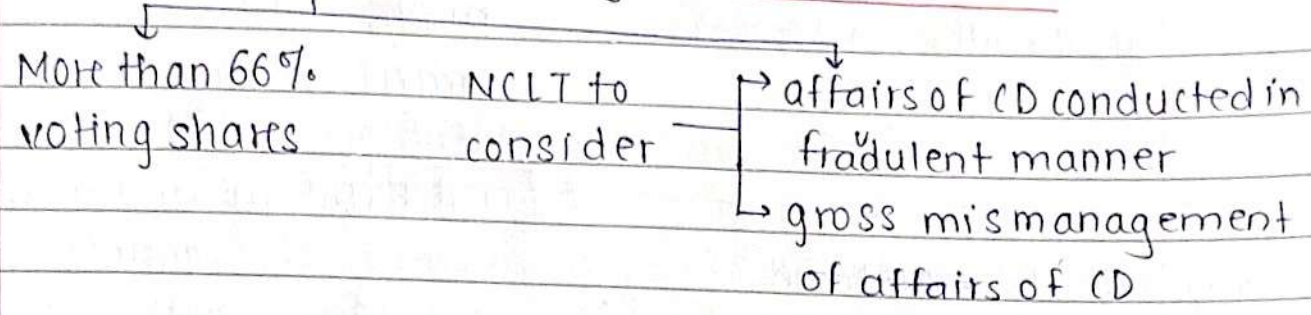 More than 66%
voting shares
NCLT to
consider
affairs of CD conducted in
fraudulent manner
gross mismanagement
of affairs of CD